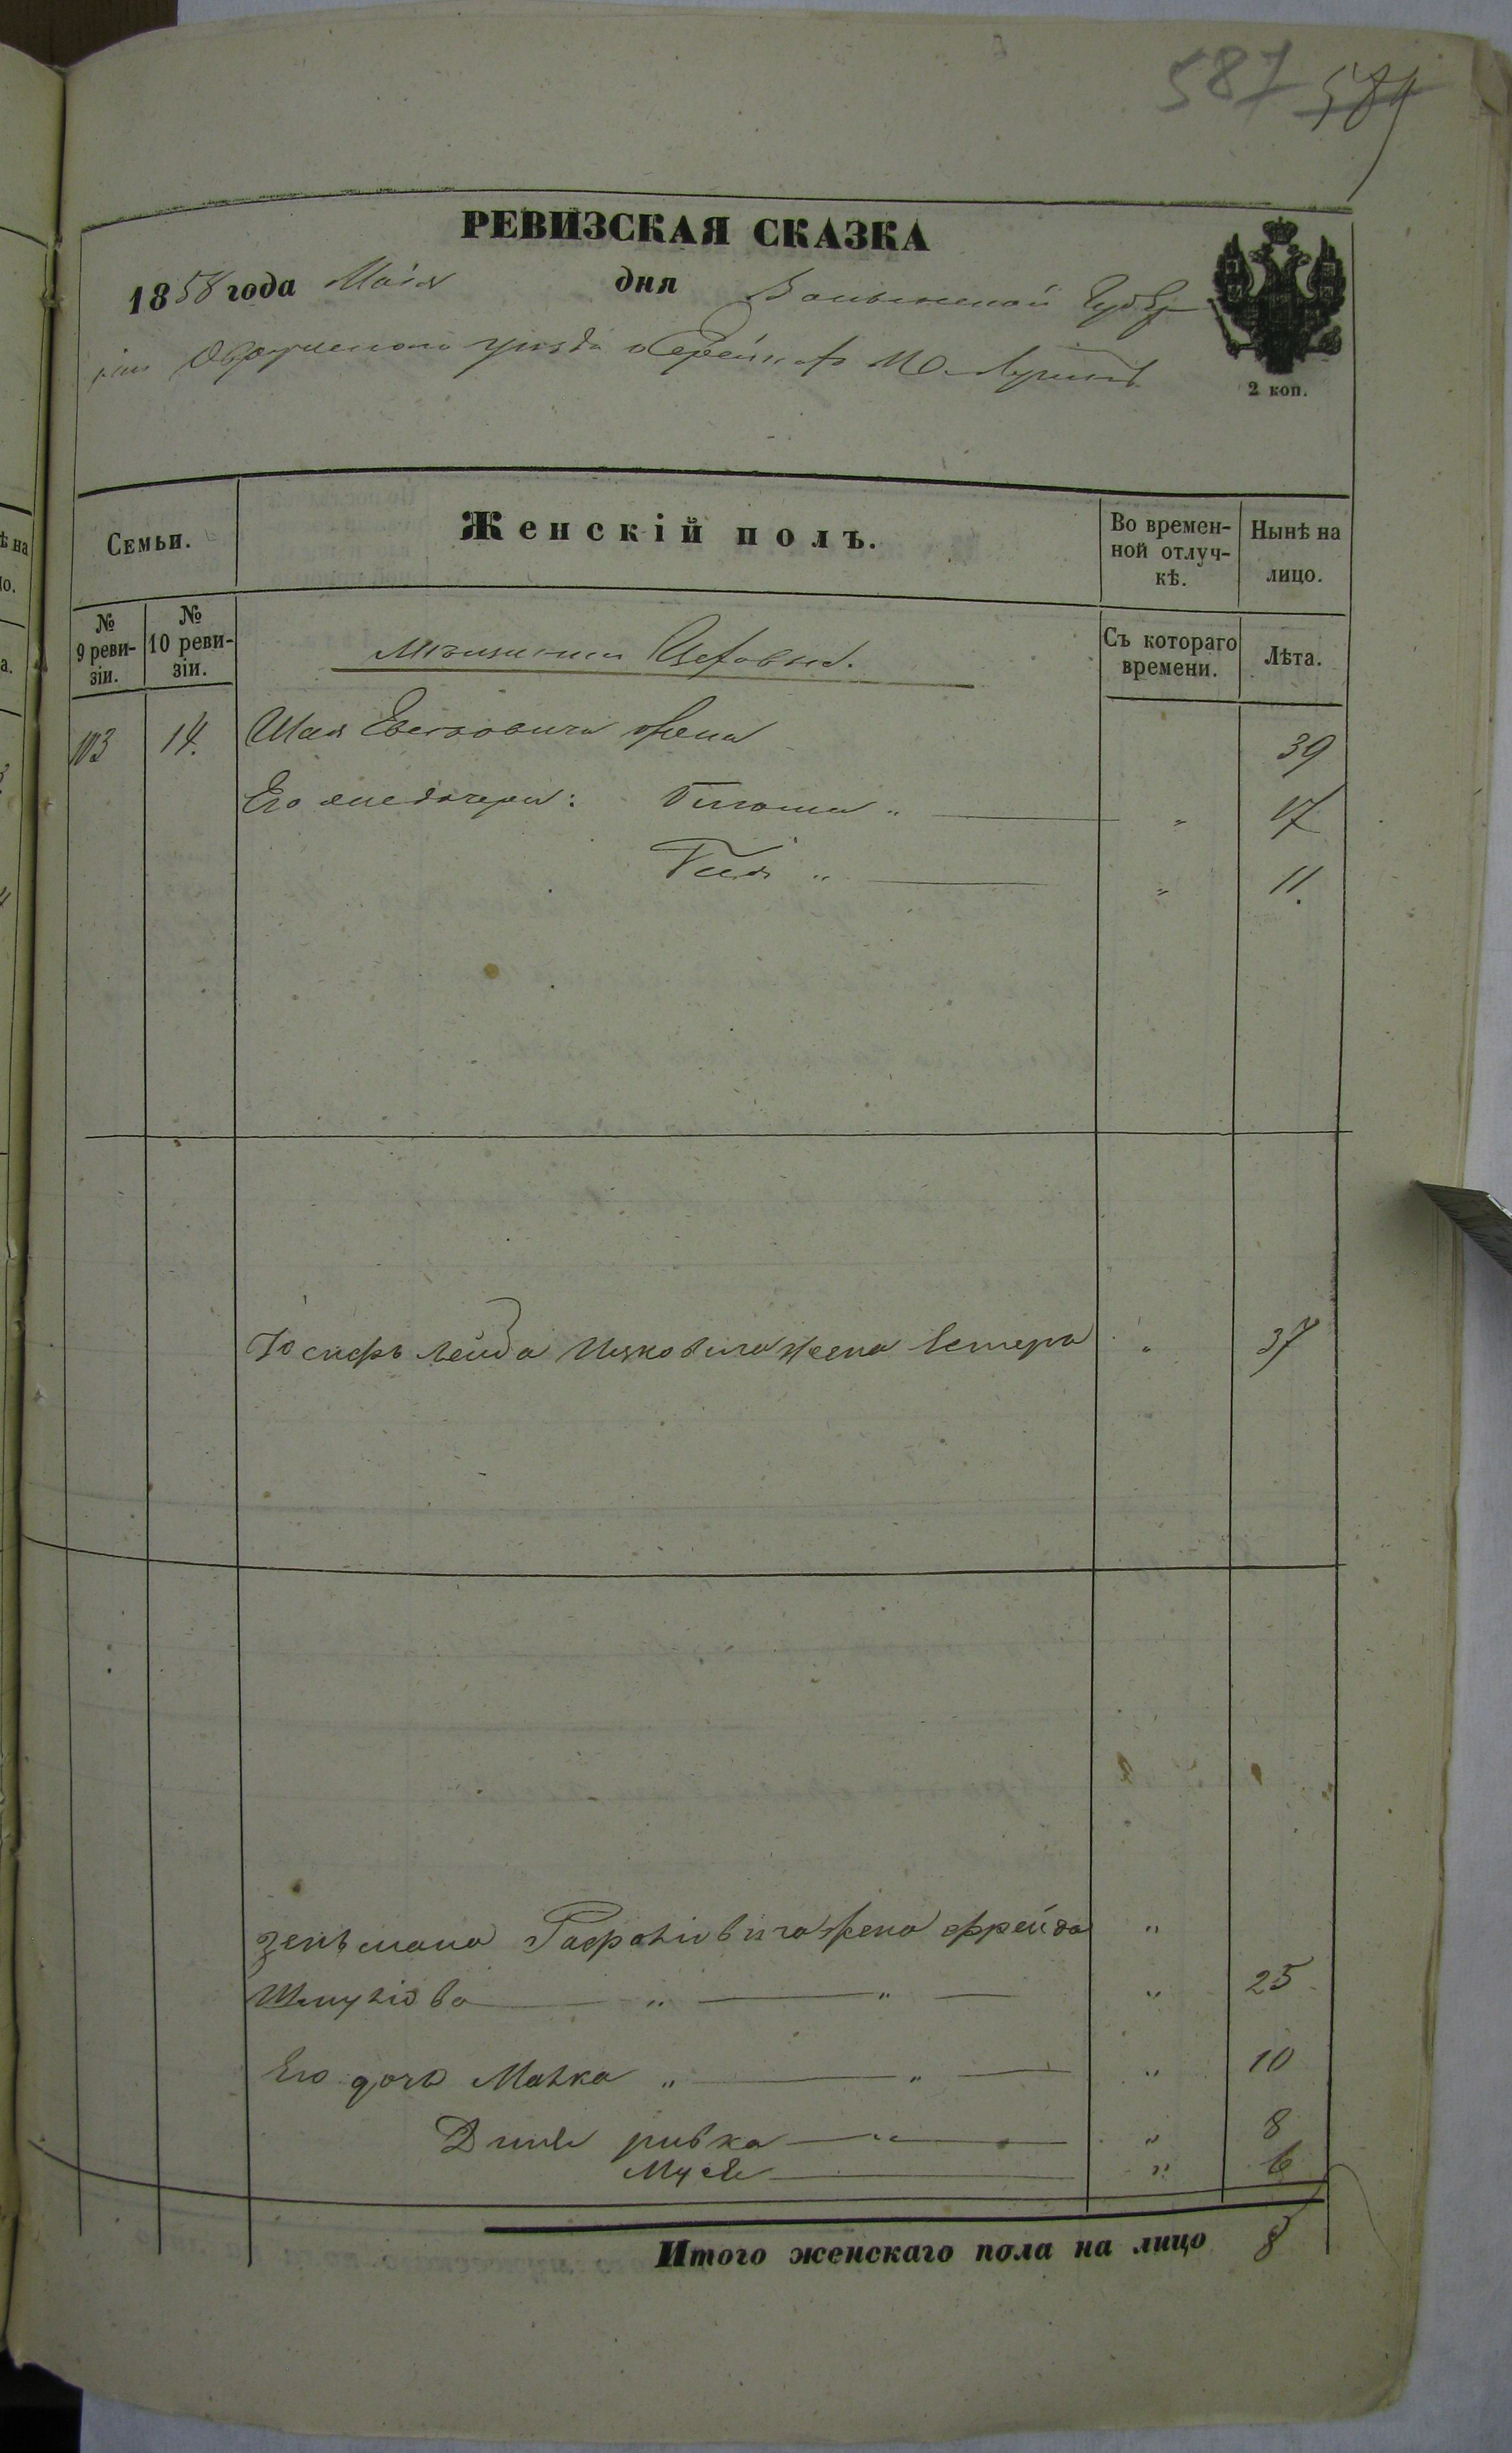 587 584
РЕВИЗСКАЯ СКАЗКА
1858 года Маія дня Волынской Губер
ніи Овручскаго уѣзда о Евреяхъ М. Лугинъ
2 коп.
Семьи.
Женскій полъ.
Во времен-
ной отлуч-
кѣ.
Нынѣ на
лицо.
№
9 реви-
зіи.
№
10 реви-
зіи.
Мѣщане
Съ котораго
времени.
Лѣта.
103 14. Шая жена 39
Его же дочери: " " 17
Гися " " 11.
Іосифъ Лейба Ицковича жена Естера " 37
Зельмана жена Фрейда "
Шмулева " " " 25
Его дочь Малка " " " 10
Двися ривка " " 8
Муся " 6
Итого женскаго пола на лицо 8